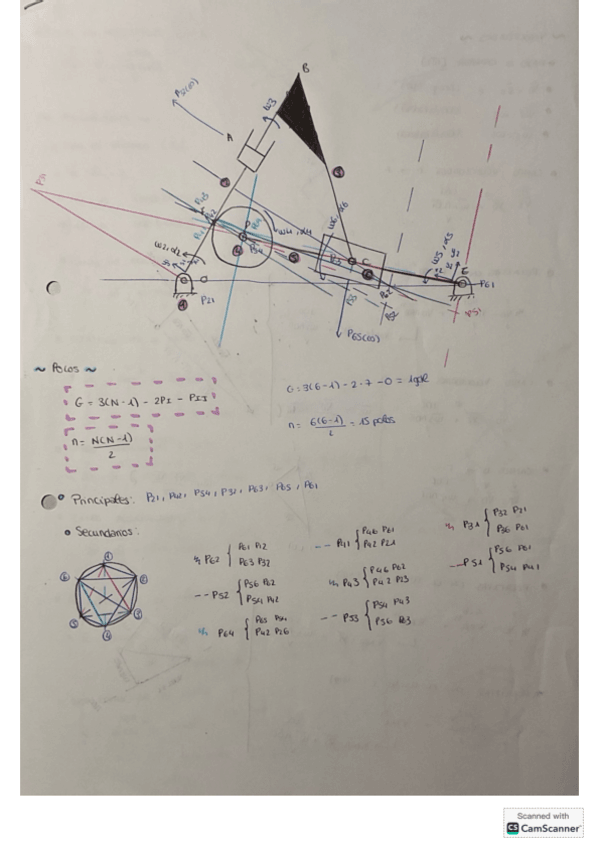 B
A
P32(∞)
ω3
P31
P43
P42
P41
P64
ω4, α4
P34
ω2, α2
O
P21
C
P53
P52
P62
P65(∞)
E
P61
P51
~ Polos ~
G = 3(N-1) - 2PI - PII
G = 3(6-1) - 2·7 - 0 = 1 gdl
n = N(N-1)
2
n = 6(6-1) = 15 polos
2
• Principales: P21, P42, P34, P32, P63, P65, P61
• Secundarios:
P62 { P61 P12
P63 P32
-- P52 { P56 P62
P54 P42
P64 { P65 P54
P42 P26
-- P41 { P46 P61
P42 P21
P43 { P46 P62
P42 P23
-- P53 { P54 P43
P56 P63
P31 { P32 P21
P36 P61
-- P51 { P56 P61
P54 P41
1
2
3
4
5
6
Scanned with
CS CamScanner